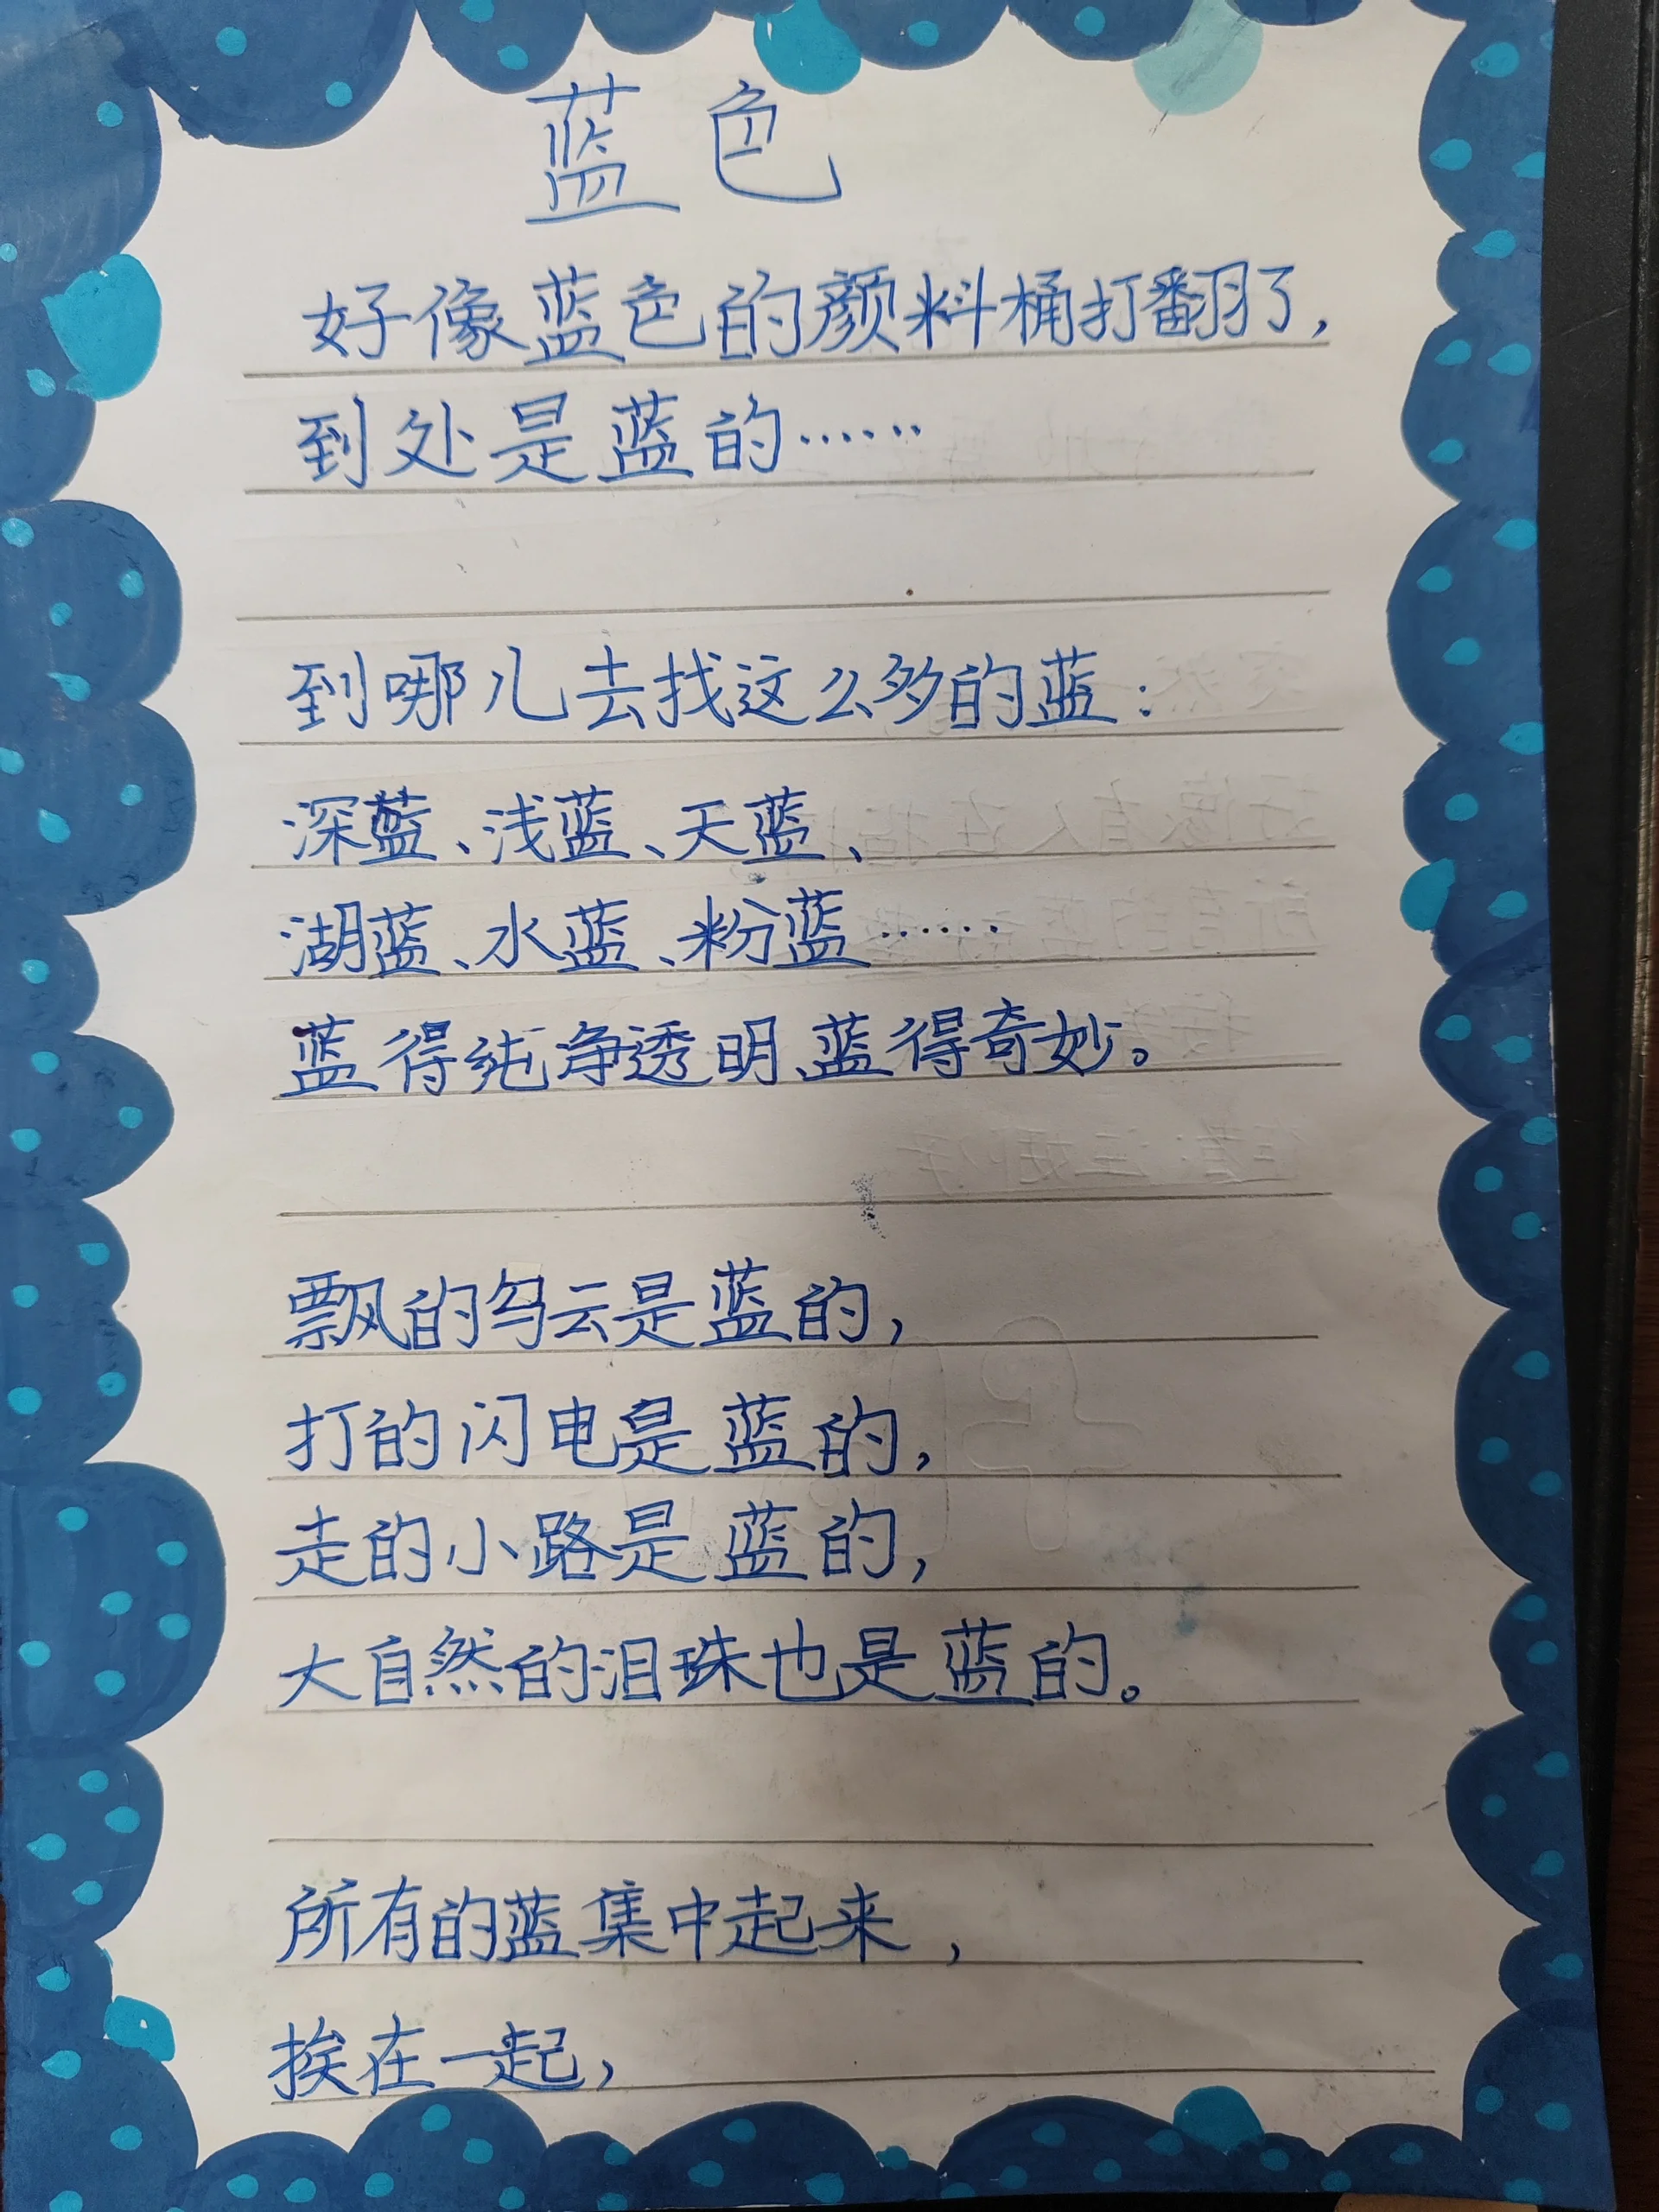 蓝色
好像蓝色的颜料桶打翻了，
到处是蓝的……
到哪儿去找这么多的蓝：
深蓝、浅蓝、天蓝、
湖蓝、水蓝、粉蓝……
蓝得纯净透明、蓝得奇妙。
飘的乌云是蓝的，
打的闪电是蓝的，
走的小路是蓝的，
大自然的泪珠也是蓝的。
所有的蓝集中起来，
挨在一起，